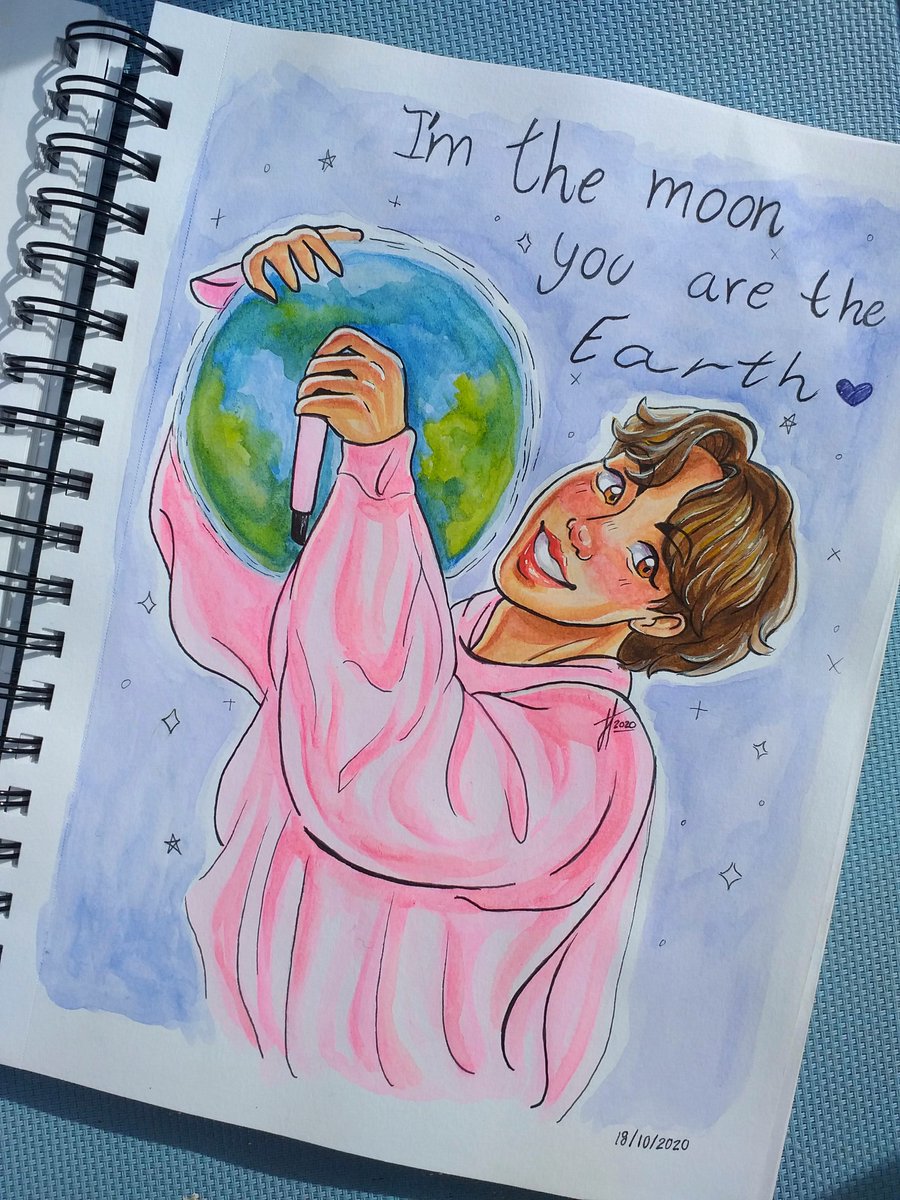 I'm the moon
you are the
Earth
2020
18/10/2020